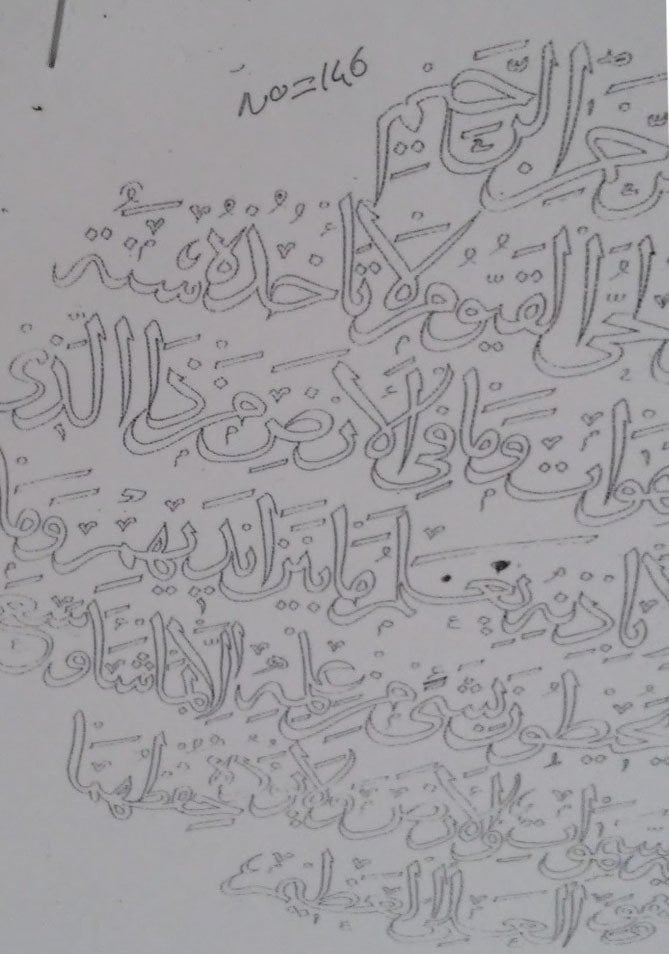 no=146
حمن الرحيم
الحي القيوم لا تأخذه سنة
سموات وما في الأرض من ذا الذي
إلا بإذنه يعلم ما بين أيديهم وما
يحيطون بشيء من علمه إلا بما شاء وسع
السموات والأرض ولا يؤده حفظهما
العلي العظيم